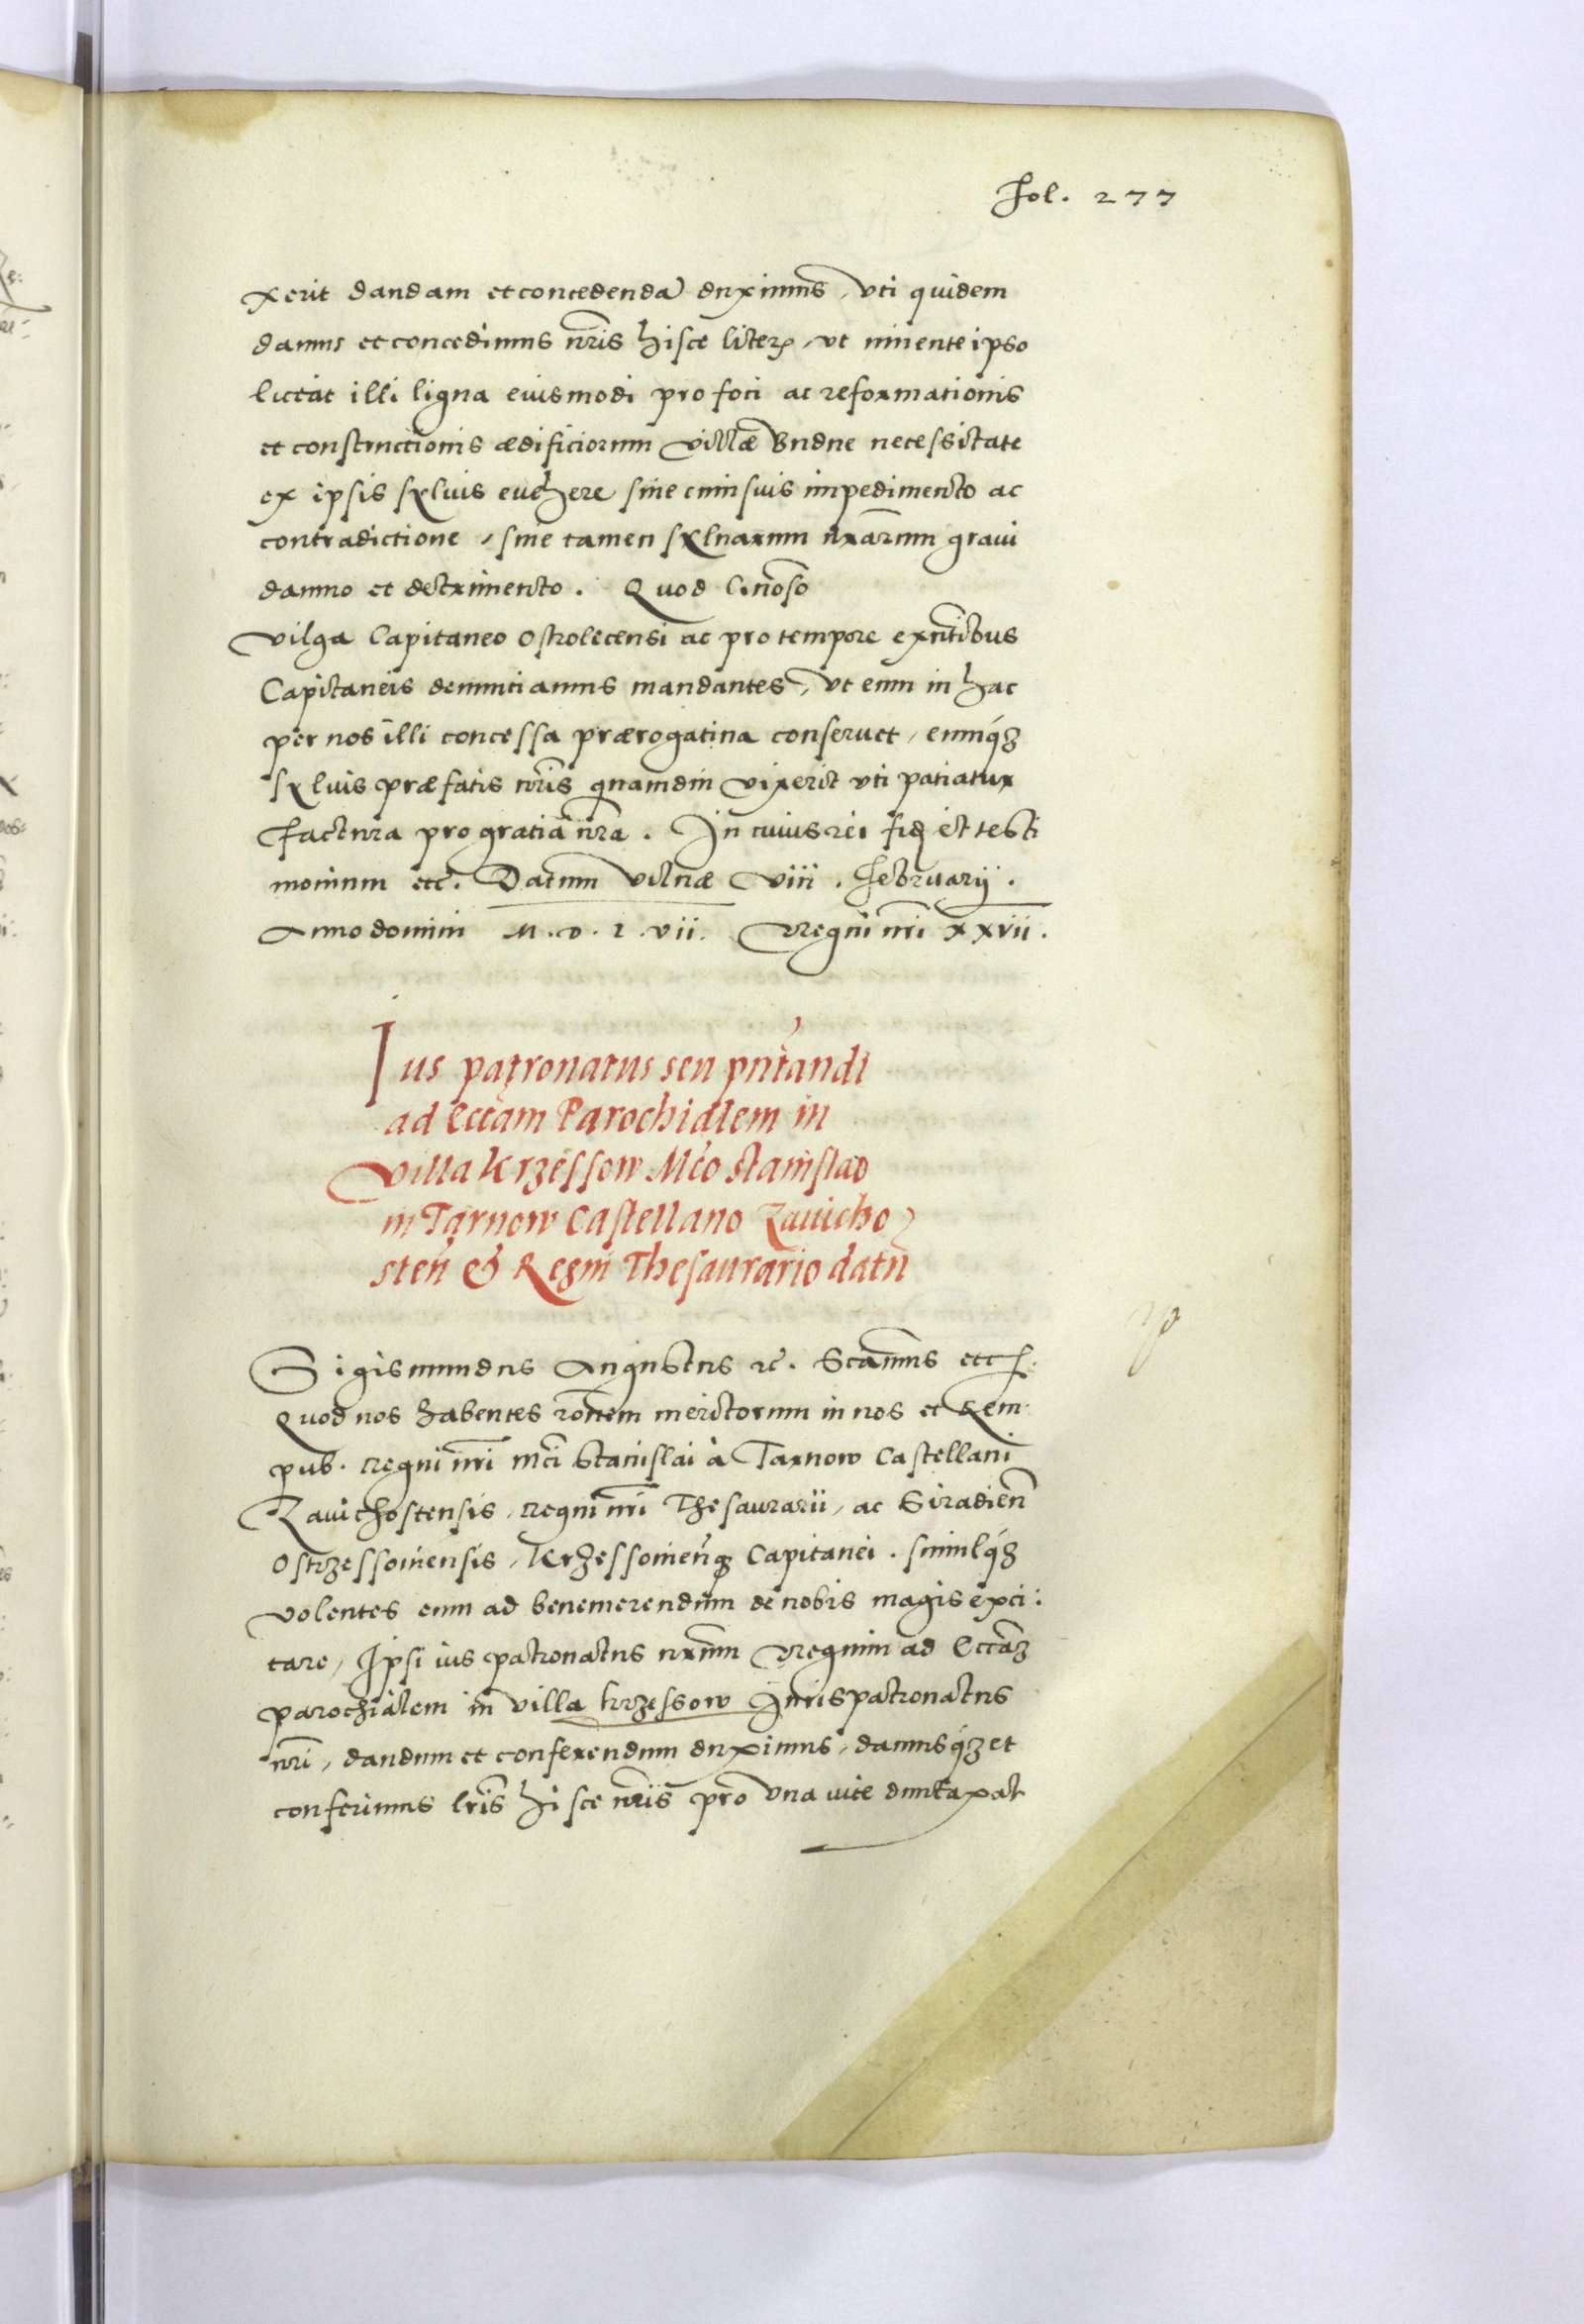 Fol. 277
xerit dandam et concedendā duximus, vti quidem
damus et concedimus nr̃is hisce literꝭ, vt viuente ipso
liceat illi ligna eiusmodi pro foci ac reformationis
et constructionis ædificiorum villæ Budne necessitate
ex ipsis syluis euehere sine cuiusuis impedimento ac
contradictione, sine tamen syluarum nrãrum graui
damno et detrimento. Quod G.noso
Vilga Capitaneo Ostrolecensi ac pro tempore exñtibus
Capitaneis denuntiamus mandantes, vt eum in hac
per nos illi concessa prærogatiua conseruet, eumq́ꝫ
syluis præfatis nr̃is quamdiu vixerit vti patiatur
facturũs pro gratiã nr̃a. In cuius rei fidẽ et testi
monium etc. Datum Vilnæ viii. Februarij.
Anno domini M.D.L.vii. Regni nr̃i xxvii.
Ius patronatus seu pñtandi
ad Eccãm Parochialem in
villa Krzessow Mco Stanislao
in Tarnow Castellano Zauicho
steñ & Regni Thesaurario datũ
Sigismundus Augustus ꝛc̃. Scimus etc.
Quod nos habentes rõnem meritorum in nos et Rem
pub. regni nr̃i mci Stanislai à Tarnow Castellani
Zauichostensis, regni nr̃i Thesaurarii, ac Siradieñ
Ostrzessouiensis, Krzessouieñq́ꝫ Capitanei. simulq́ꝫ
volentes eum ad benemerendum de nobis magis exci:
tare, Ipsi ius patronatus nrũm Regium ad Eccãꝫ
parochialem in villa Krzessow Iurispatronatus
nr̃i, dandum et conferendum duximus, damusq́ꝫ et
conferimus lr̃is hisce nr̃is pro vna vice duntaxat